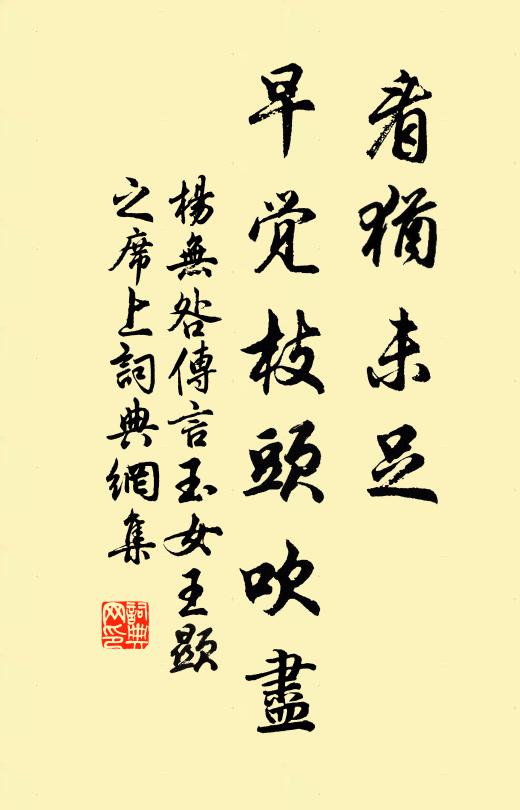 看猶未足
早觉枝頭吹盡
楊無咎傳言玉女王顯
之席上詞典網集
詞典网印